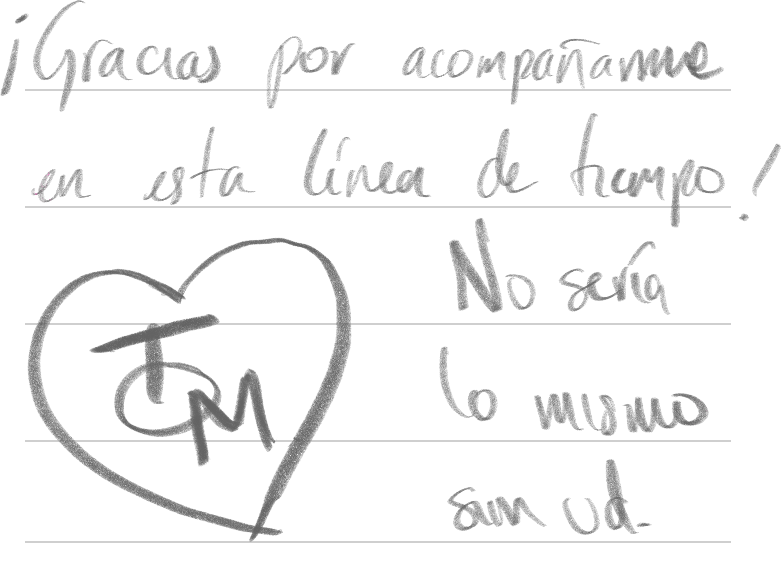 ¡Gracias por acompañarme
en esta línea de tiempo!
No sería
lo mismo
TQM
sin ud.